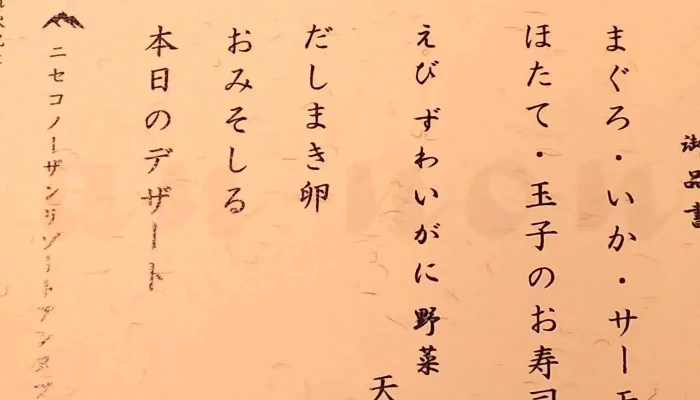 御品書
まぐろ・いか・サーモ
ほたて・玉子のお寿司
えび ずわいがに 野菜
天
だしまき卵
おみそしる
本日のデザート
ニセコノーザンリゾートアンヌプ